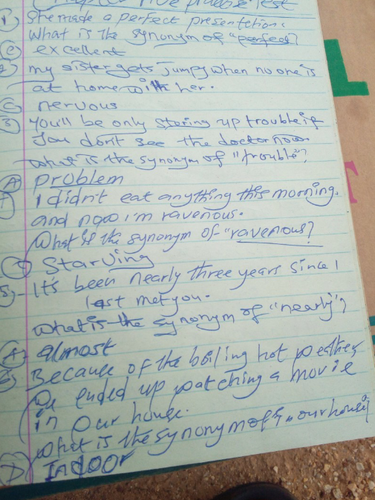 Chapter Five Practice Test
1 She made a perfect presentation.
What is the synonym of "perfect?
C excellent
2, my sister gets jumpy when no one is
at home with her.
C nervous
3 You'll be only storing up trouble if
you don't see the doctor now.
what is the synonym of "trouble"?
A problem
I didn't eat anything this morning.
and now i'm ravenous.
What is the synonym of "ravenous?
Starving
5, It's been nearly three years since I
last met you.
what is the synonym of "nearly"?
A, almost
Because of the boiling hot weather
we ended up watching a movie
in our house.
what is the synonym of "our house"
D Indoor